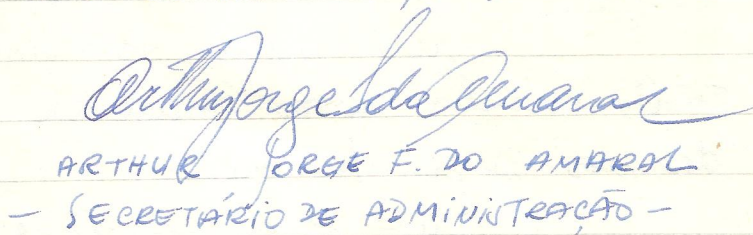 Arthur Jorge F do Amaral
ARTHUR JORGE F. DO AMARAL
- SECRETÁRIO DE ADMINISTRAÇÃO -